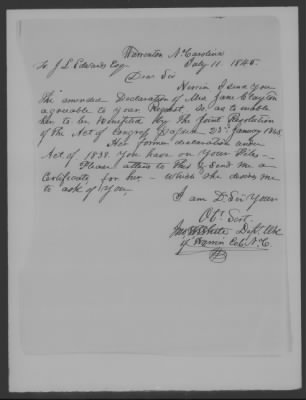 Warrenton N. Carolina
To J. L. Edwards Esq July 11. 1845.
Dear Sir
Herein I send you
The amended Declaration of Mrs Jane Clayton
agreeable to your Request So as to enable
her to be benefited by the Joint Resolution
of The Act of Congress 23d January 1845.
Her former declaration under
Act of 1838. you have on your Files—
Please attend to This & Send me a
Certificate for her — which She desires me
to ask of you
I am D. Sir Your
Obt. Sert.
White Dept. Clk
of Warren Co. N. C.